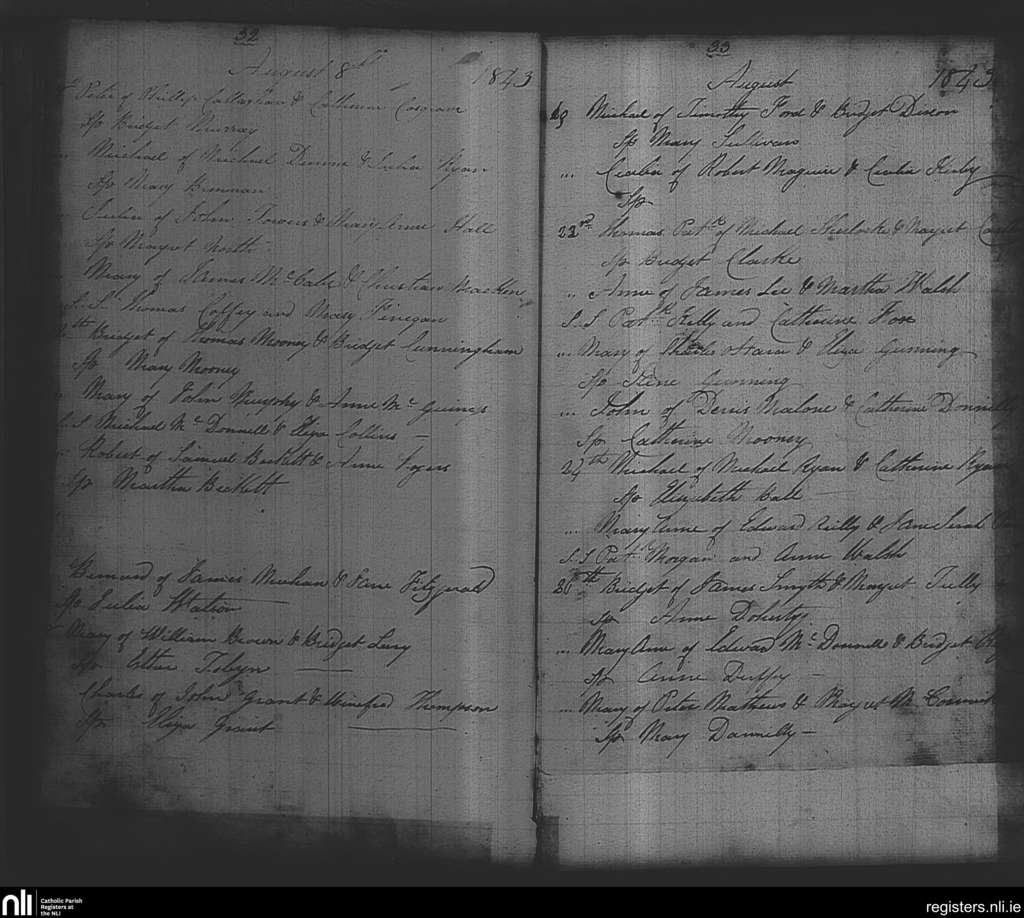 32
August 8th 1843
Peter of Phillip Callaghan & Catherine
Sp Bridget Murray
Michael of Michael & Julia Ryan
Sp Mary
Julia of John Towers & Mary Anne Hall
Sp Margret North
Mary of James McCabe & Christian Bracken
S.S. Thomas Coffey and Mary Finegan
Bridget of Thomas Mooney & Bridget Cunningham
Sp Mary Mooney
Mary of John Murphy & Anne Mc
S.S Michael McDonnell & Eliza Collins
Robert of Samuel Beckett & Anne
Sp Martha Beckett
Bernard of James Meehan & Jane Fitzgerald
Sp Julia Watson
Mary of William Brown & Bridget
Sp Esther
Charles of John Grant & Winefred Thompson
Sp Eliza Grant
33
August 1843
19 Michael of Timothy Ford & Bridget Dixon
Sp Mary Sullivan
... Cecilia of Robert Maguire & Cecilia Kirby
Sp
22nd Thomas Patk of Michael Sherlocke & Margret
Sp Bridget Clarke
" Anne of James Lee & Martha Walsh
S.S Patk Kelly and Catherine Fox
... Mary of Charles O Hara & Eliza Gunning
Sp Gunning
... John of Denis Malone & Catherine Donnelly
Sp Catherine Mooney
24th Michael of Michael Ryan & Catherine Ryan
Sp Elizabeth Ball
... Mary Anne of Edward Reilly & Jane Sarah
S.S Patk Morgan and Anne Walsh
26th Bridget of James Smyth & Margret
Sp Anne Doherty
... Mary Anne of Edward McDonnell & Bridget
Sp Anne Duffey
... Mary of Peter Mathews & Margret Mc
Sp Mary Dannelly
nli
Catholic Parish
Registers at
the NLI
registers.nli.ie